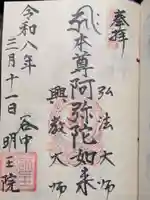 奉拝
弘法大師
本尊阿弥陀如来
興教大師
令和八年
三月十一日
谷中
明王院